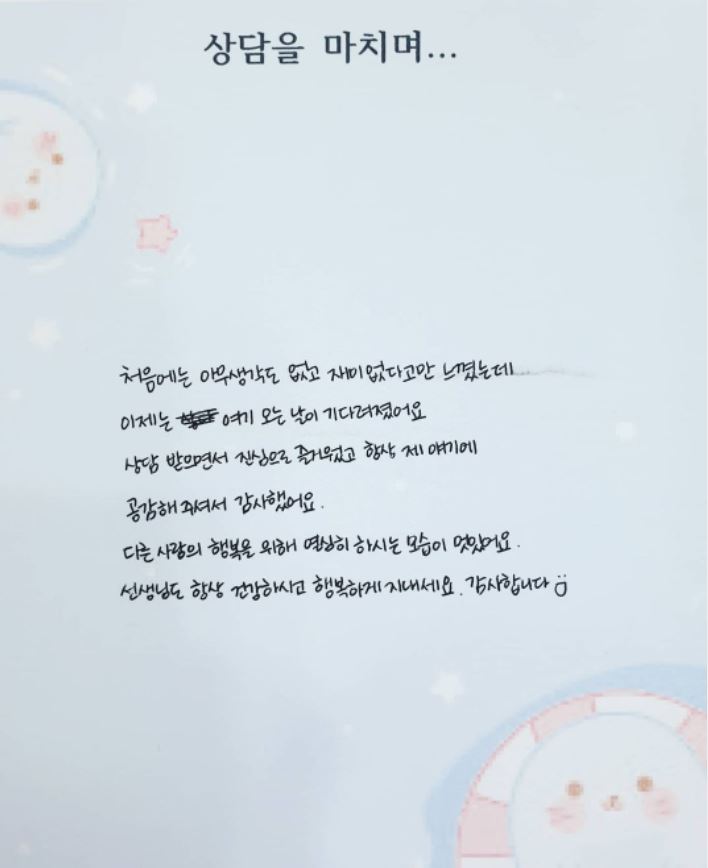 상담을 마치며...
처음에는 아무생각도 없고 재미없다고만 느꼈는데...
이제는 여기 오는 날이 기다려졌어요
상담 받으면서 진심으로 즐거웠고 항상 제 얘기에
공감해 주셔서 감사했어요.
다른 사람의 행복을 위해 열심히 하시는 모습이 멋있어요.
선생님도 항상 건강하시고 행복하게 지내세요. 감사합니다